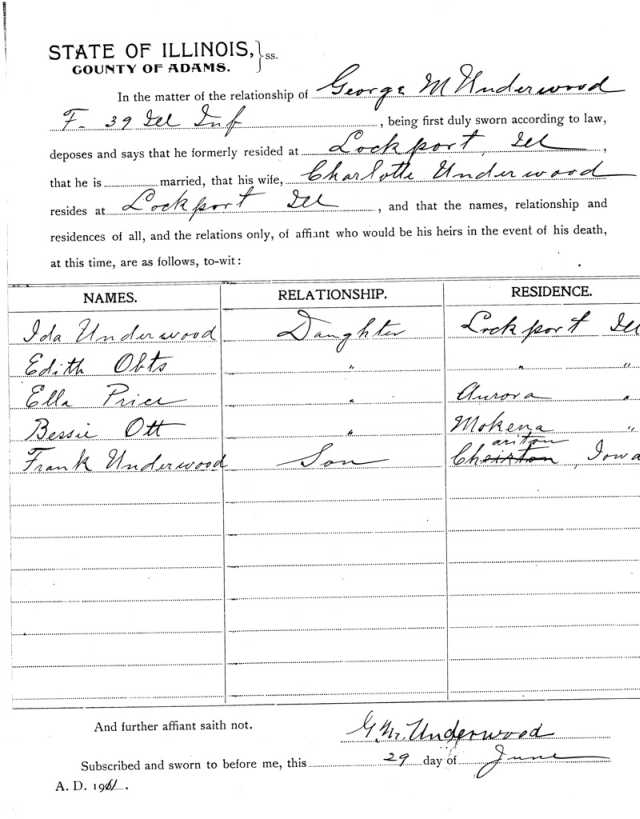 STATE OF ILLINOIS, } ss.
COUNTY OF ADAMS.
In the matter of the relationship of George M Underwood
F. 39 Ill Inf, being first duly sworn according to law,
deposes and says that he formerly resided at Lockport, Ill,
that he is married, that his wife, Charlotte Underwood
resides at Lockport Ill, and that the names, relationship and
residences of all, and the relations only, of affiant who would be his heirs in the event of his death,
at this time, are as follows, to-wit:
NAMES. RELATIONSHIP. RESIDENCE.
Ida Underwood Daughter Lockport Ill
Edith Obts " " "
Ella Price " Aurora "
Bessie Ott " Mokena "
ariton
Frank Underwood Son Ch , Iowa
And further affiant saith not.
G. M. Underwood
Subscribed and sworn to before me, this 29 day of June
A. D. 1911.